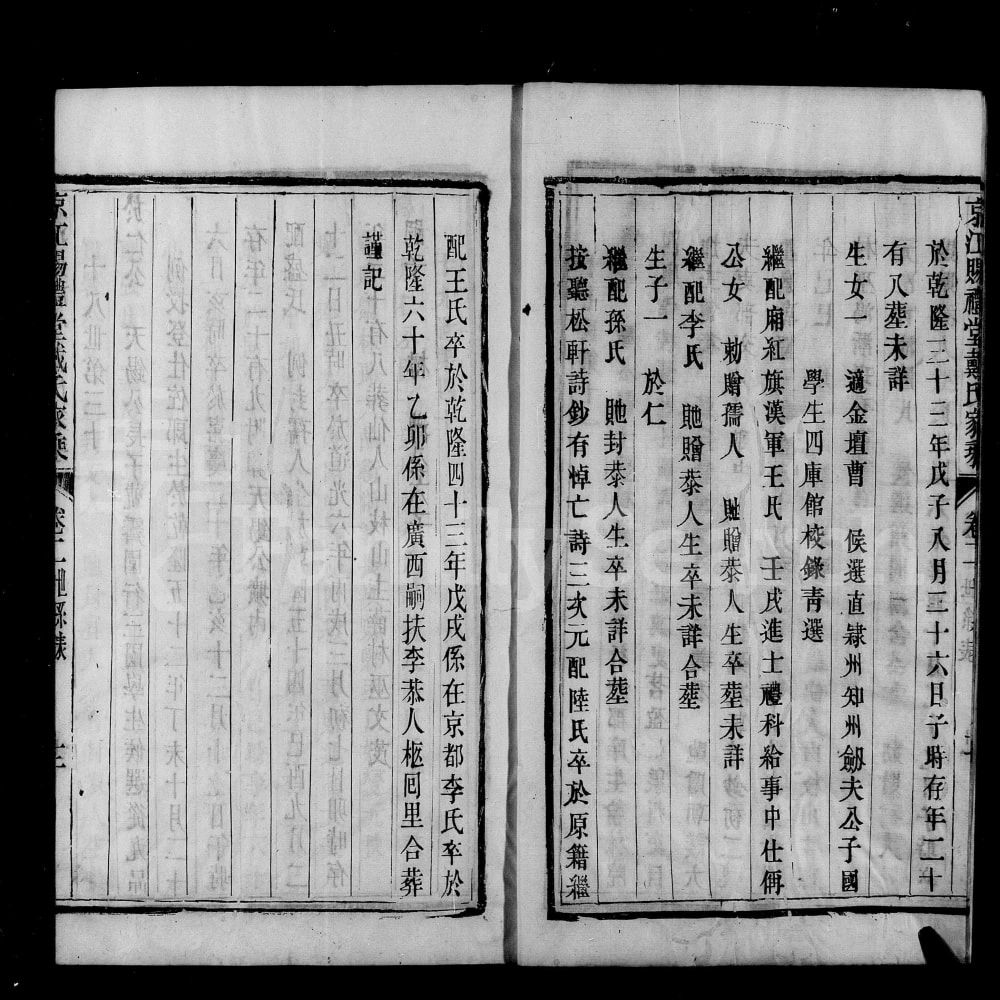 京江賜禮堂戴氏家乘 卷二世系錄
於乾隆三十三年戊子八月三十六日子時存年二十
有八塟未詳
生女一 適金壇曹 候選直隸州知州劒夫公子國
學生四庫館校錄青選
繼配廂紅旗漢軍王氏 壬戌進士禮科給事中仕
公女 勅贈孺人 貤贈恭人生卒塟未詳
繼配李氏 貤贈恭人生卒未詳合塟
生子一 於仁
繼配孫氏 貤封恭人生卒未詳合塟
按聽松軒詩鈔有悼亡詩三次元配陸氏卒於原籍繼
配王氏卒於乾隆四十三年戊戌係在京都李氏卒於
乾隆六十年乙卯係在廣西嗣扶李恭人柩囘里合葬
謹記
京江賜禮堂戴氏家乘 卷二世系錄